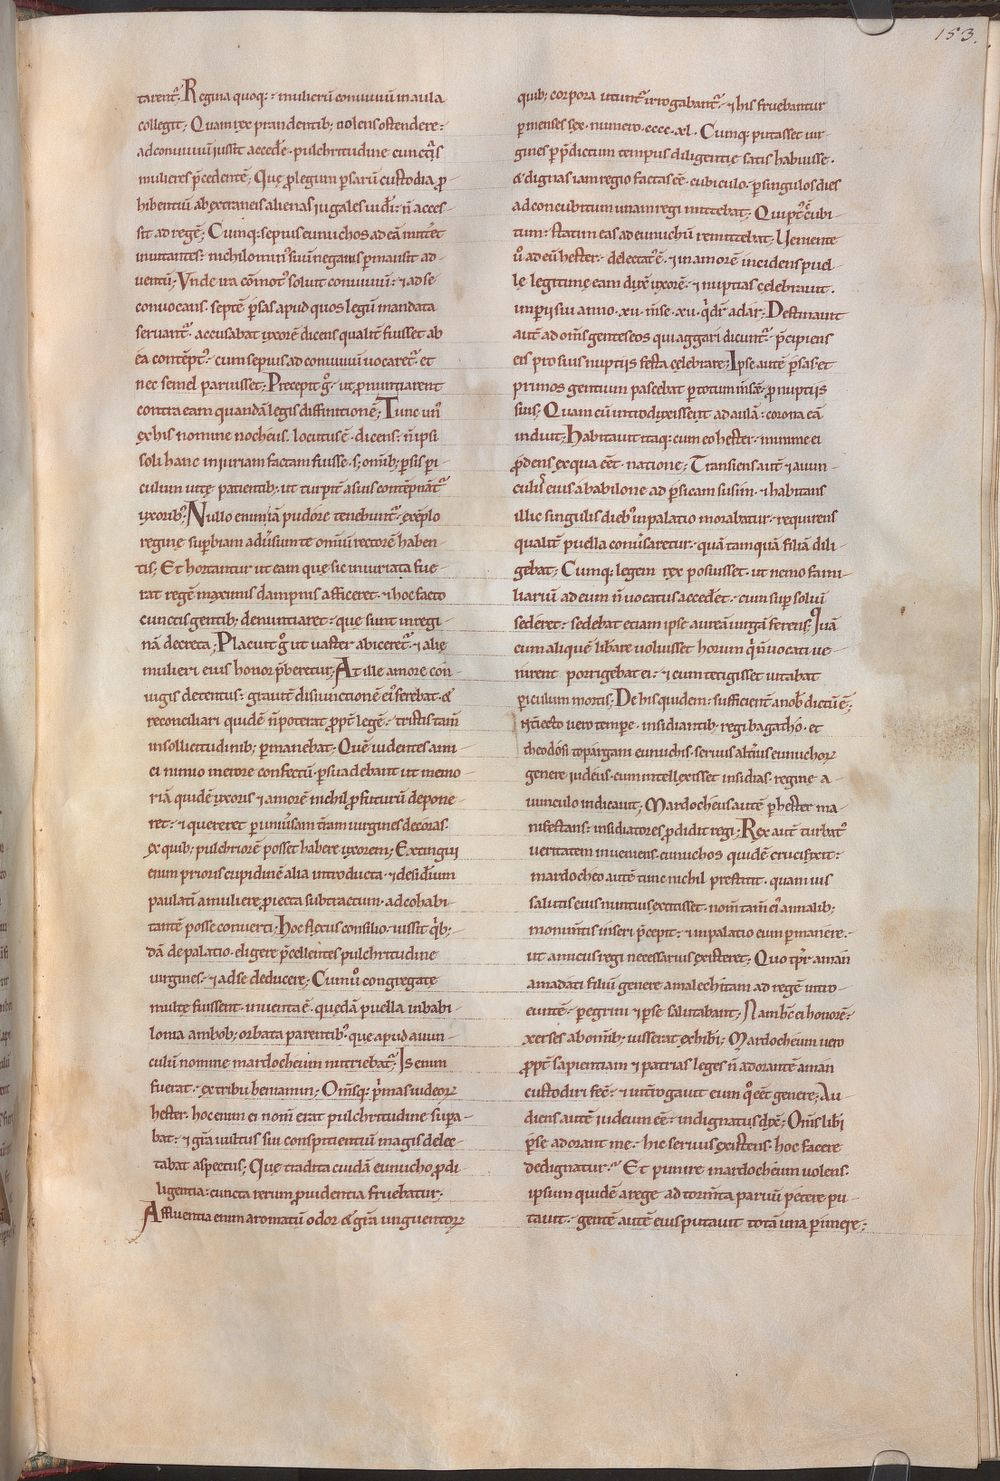 153.
tarent᷑; Regina quoq; mulierū conuiuiū in aula
collegit; Quam rex prandentib; uolens ostendere
ad conuiuiū iussit accedēe. pulchritudine cunct̄is
mulieres p̄cedentē; Quę ꝓ legum ꝑsarū custodia ꝓ
hibentiū ab extraneis alienas iugales uidēi. n̄ acces
sit ad regē; Cumq; sepius eunuchos ad eā mitt̄et
inuitantes. nichilomin᷒ suū negans ꝑmansit ad
uentū; Vnde ira cōmot᷒ soluit conuiuiū. ⁊ ad se
conuocans. septē ꝑsas apud quos legū mandata
seruant᷑. accusabat uxorē dicens qualit̄ fuisset ab
ea contēpt᷒. cum sepius ad conuiuiū uocaret᷑. et
nec semel paruisset; Precepit ḡ. ut ꝓnuntiarent
contra eam quandā legis diffinitionē; Tunc un᷒
ex his nomine nocheus. locutus ē. dicens. n̄ ipsi
soli hanc iniuriam factam fuisse. s; omīb; ꝑsis ꝑi
culum uitę patientib; ut turpit̄ a suis contēpnāt᷑
uxorib᷒; Nullo enim iā pudore tenebunt᷑. exēplo
reginę suꝑbiam aduersum te omniū rectorē haben
tis; Et hortantur ut eam quę sic iniuriata fue
rat regē maximis dampnis afficeret. ⁊ hoc facto
cunctis gentib; denuntiaret. quę sunt in regi
nā decreta; Placuit ḡ ut uaster abiceret᷑. ⁊ alię
mulieri eius honor p̄beretur; At ille amore con
iugis detentus. grauit̄ disiunctionē ei᷒ ferebat. &
reconciliari quidē n̄ poterat ꝓpt̄ legē. tristis tam̄
in sollicitudinib; ꝑmanebat; Quē uidentes ami
ci nimio merore confectū. ꝑsuadebant ut memo
riā quidē uxoris ⁊ amorē nichil ꝓfuturū depone
ret. ⁊ quereret ꝑ uniuersam t̄ram uirgines decoras.
ex quib; pulchriorē posset habere uxorem; Extingui
enim prioris cupidinē alia introducta. ⁊ desid̄ium
paulatī a muliere ꝓiecta subtractum. ad cohabi
tantē posse conuerti; Hoc flexus consilio. iussit q̄ib;
dā de palatio. eligere p̄cellentes pulchritudine
uirgines. ⁊ ad se deducere; Cum ū congregatę
multę fuissent. inuenta ē. quędā puella in babi
lonia ambob; orbata parentib᷒. quę apud auun
culū nomine mardocheum nutriebat᷑; Is enim
fuerat. ex tribu beniamin; Om̄sq; p̄mas iudeoꝝ
hester. hoc enim ei nom̄ erat pulchritudine suꝑa
bat. ⁊ gr̄a uultus sui conspitientiū magis delec
tabat aspectus; Quę tradita cuidā eunucho ꝓ di
ligentia. cuncta rerum ꝓuidentia fruebatur.
Affluentia enim aromatū odor & gr̄a unguentoꝝ
quib; corpora utunt᷑ irrogabant᷑. ⁊ his fruebantur
ꝑ menses sex. numero. cccc. xl. Cumq; putasset uir
gines ꝑ p̄dictum tempus diligentię satis habuisse.
& dignas iam regio factas eē. cubiculo. ꝑ singulos dies
ad concubitum unam regi mittebat; Qui p᷒t c̄cubi
tum. statim eas ad eunuchū remittebat; Veniente
ū ad eū hester. delectat᷒ ē. ⁊ in amorē incidens puel
lę legitime eam dux̄ uxorē. ⁊ nuptias celebrauit.
impii sui anno. xii. m̄se. xii. q̄ dr̄ adar; Destinauit
aut̄ ad om̄s gentes eos qui aggari dicunt᷑. p̄cipiens
eis pro suis nuptiis festa celebrare; Ipse autē ꝑsas et
primos gentium pascebat ꝑ totum m̄sē. ꝓ nuptiis
suis; Quam cū introduxissent ad aulā. corona eā
induit; Habitauit itaq; cum eo hester. minime ei
ꝓdens ex qua eēt natione; Transiens aut̄ ⁊ auun
culus eius a babilone ad ꝑsicam susim. ⁊ habitans
illic singulis dieb᷒ in palatio morabatur. requirens
qualit̄ puella conuersaretur. quā tamquā filiā dili
gebat; Cumq; legem rex posuisset. ut nemo fami
liariū ad eum n̄ uocatus accederet. cum suꝑ soliū
sederet. sedebat etiam ipse aureā uirgā ferens; Quā
cum aliquē lib̄are uoluisset horum q̄ n̄ uocati ue
nirent porrigebat ei. ⁊ cum tetigisset uitabat
ꝑiculum mortis; De his quidem. sufficient̄ a nob᷒ dictū ē;
Int̄iecto uero tempe. insidiantib; regi bagatho. et
theodosi toparigani eunuchis. seruus alt̄ius eunuchoꝝ
genere iudeus. cum intellexisset insidias. reginę a
uunculo indicauit; Mardocheus autē ꝑ hester ma
nifestans. insidiatores ꝓdidit regi; Rex aut̄ turbat᷒
ueritatem inueniens. eunuchos quidē crucifixit.
mardocheo autē tunc nichil prestitit. quam uis
salutis eius nuntius extitisset. nom̄ tam̄ ei᷒ annalib;
monumītis inseri p̄cepit. ⁊ in palatio eum ꝑmanere.
ut amicus regi necessarius existeret; Quo tp̄r aman
amadati filiū genere amalechitam ad regē intro
euntē. ꝑegrini ⁊ ꝑse salutabant; Nam hc̄ ei honorē.
xerses ab omīb; iusserat exhib̄i; Mardocheum uero
ꝓpt̄ sapientiam ⁊ patrias leges n̄ adorantē aman
custodiri fec̄. ⁊ int̄rogauit eum q̊ eēt genere; Au
diens autē iudeum eē. indignatus dx̄; Om̄s lib̄i
ꝑse adorant me. hic seruus existens. hoc facere
dedignatur. Et punire mardocheum uolens.
ipsum quidē a rege ad torm̄ta paruū petere pu
tauit. gentē autē eius putauit totā una ꝑimere;